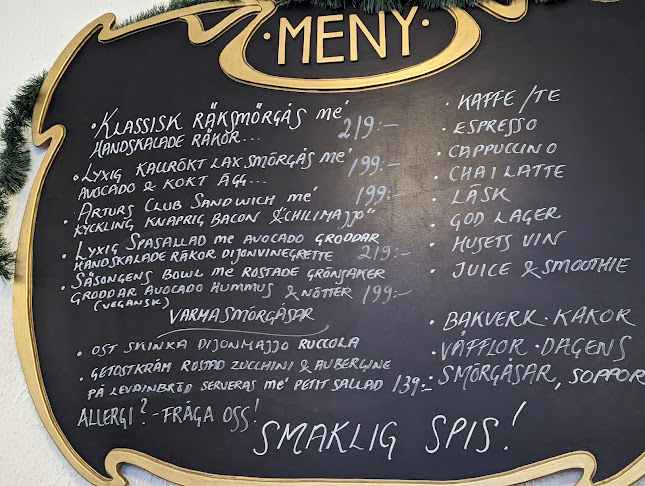 ·MENY·
·KLASSISK RÄKSMÖRGÅS me´
HANDSKALADE RÄKOR... 219:-
·LYXIG KALLRÖKT LAX SMÖRGÅS me´
AVOCADO & KOKT ÄGG... 199:-
·ARTURS CLUB SANDWICH me´ 199:-
KYCKLING KNAPRIG BACON & "CHILIMAJJO"
·LYXIG SPASALLAD me AVOCADO GRODDAR
HANDSKALADE RÄKOR DIJONVINEGRETTE 219:-
·SÄSONGENS BOWL me ROSTADE GRÖNSAKER
GRODDAR AVOCADO HUMMUS & NÖTTER 199:-
(VEGANSK)
VARMA SMÖRGÅSAR
·OST SKINKA DIJONMAJJO RUCCOLA
·GETOSTKRÄM ROSTAD ZUCCHINI & AUBERGINE
PÅ LEVAINBRÖD SERVERAS me´ PETIT SALLAD 139:-
ALLERGI? - FRÅGA OSS!
·KAFFE/TE
·ESPRESSO
·CAPPUCCINO
·CHAI LATTE
·LÄSK
·GOD LAGER
·HUSETS VIN
·JUICE & SMOOTHIE
·BAKVERK·KAKOR
·VÅFFLOR·DAGENS
·SMÖRGÅSAR, SOPPOR
SMAKLIG SPIS!